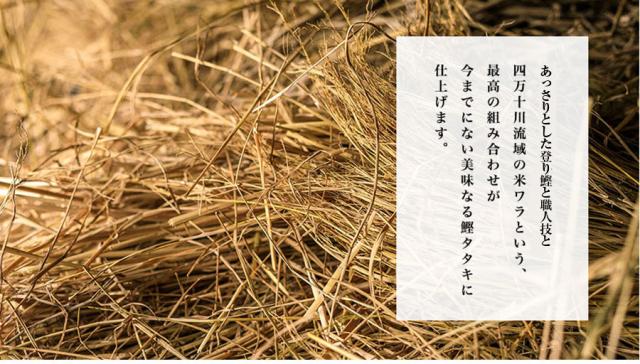 あっさりとした登り鰹と職人技と
四万十川流域の米ワラという、
最高の組み合わせが
今までにない美味なる鰹タタキに
仕上げます。